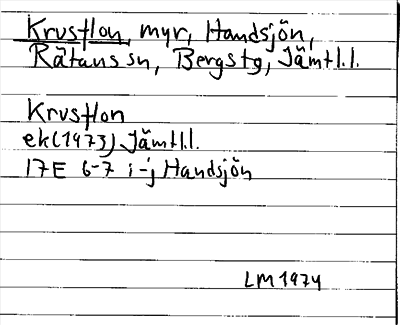 Krustlon, myr, Handsjön,
Rätans sn, Bergs tg, Jämtl.l.
Krustlon
ek (1973) Jämtl.l.
17E 6-7 i-j Handsjön
LM 1974